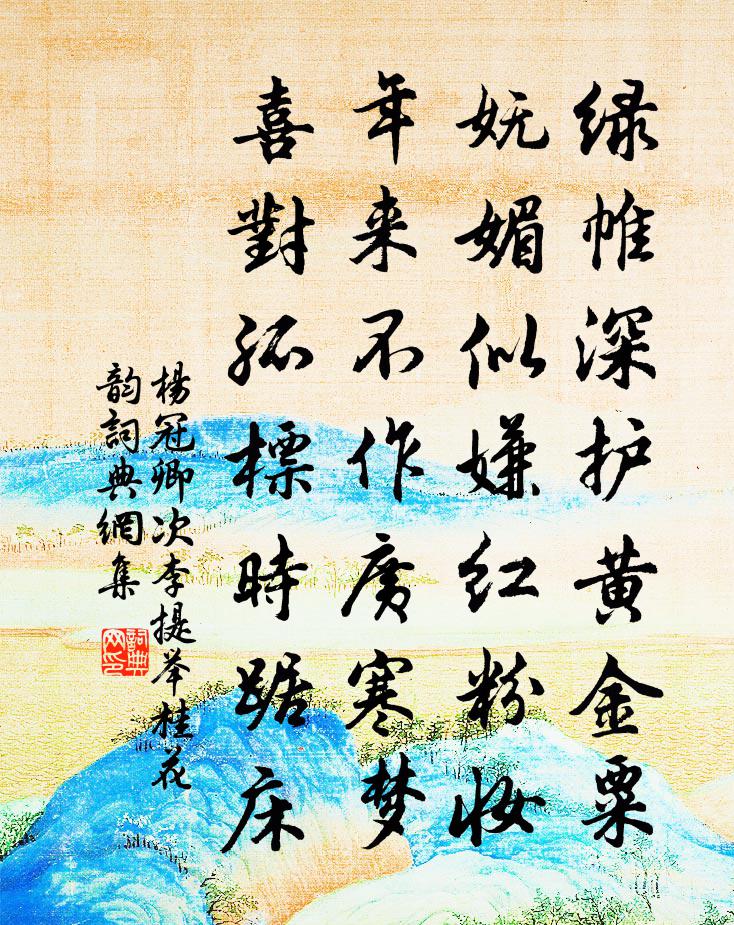 绿帷深护黄金粟
妩媚似嫌红粉妆
年来不作广寒梦
喜對孤標時踞床
楊冠卿次李提举桂花
韵詞典網集
詞典网印